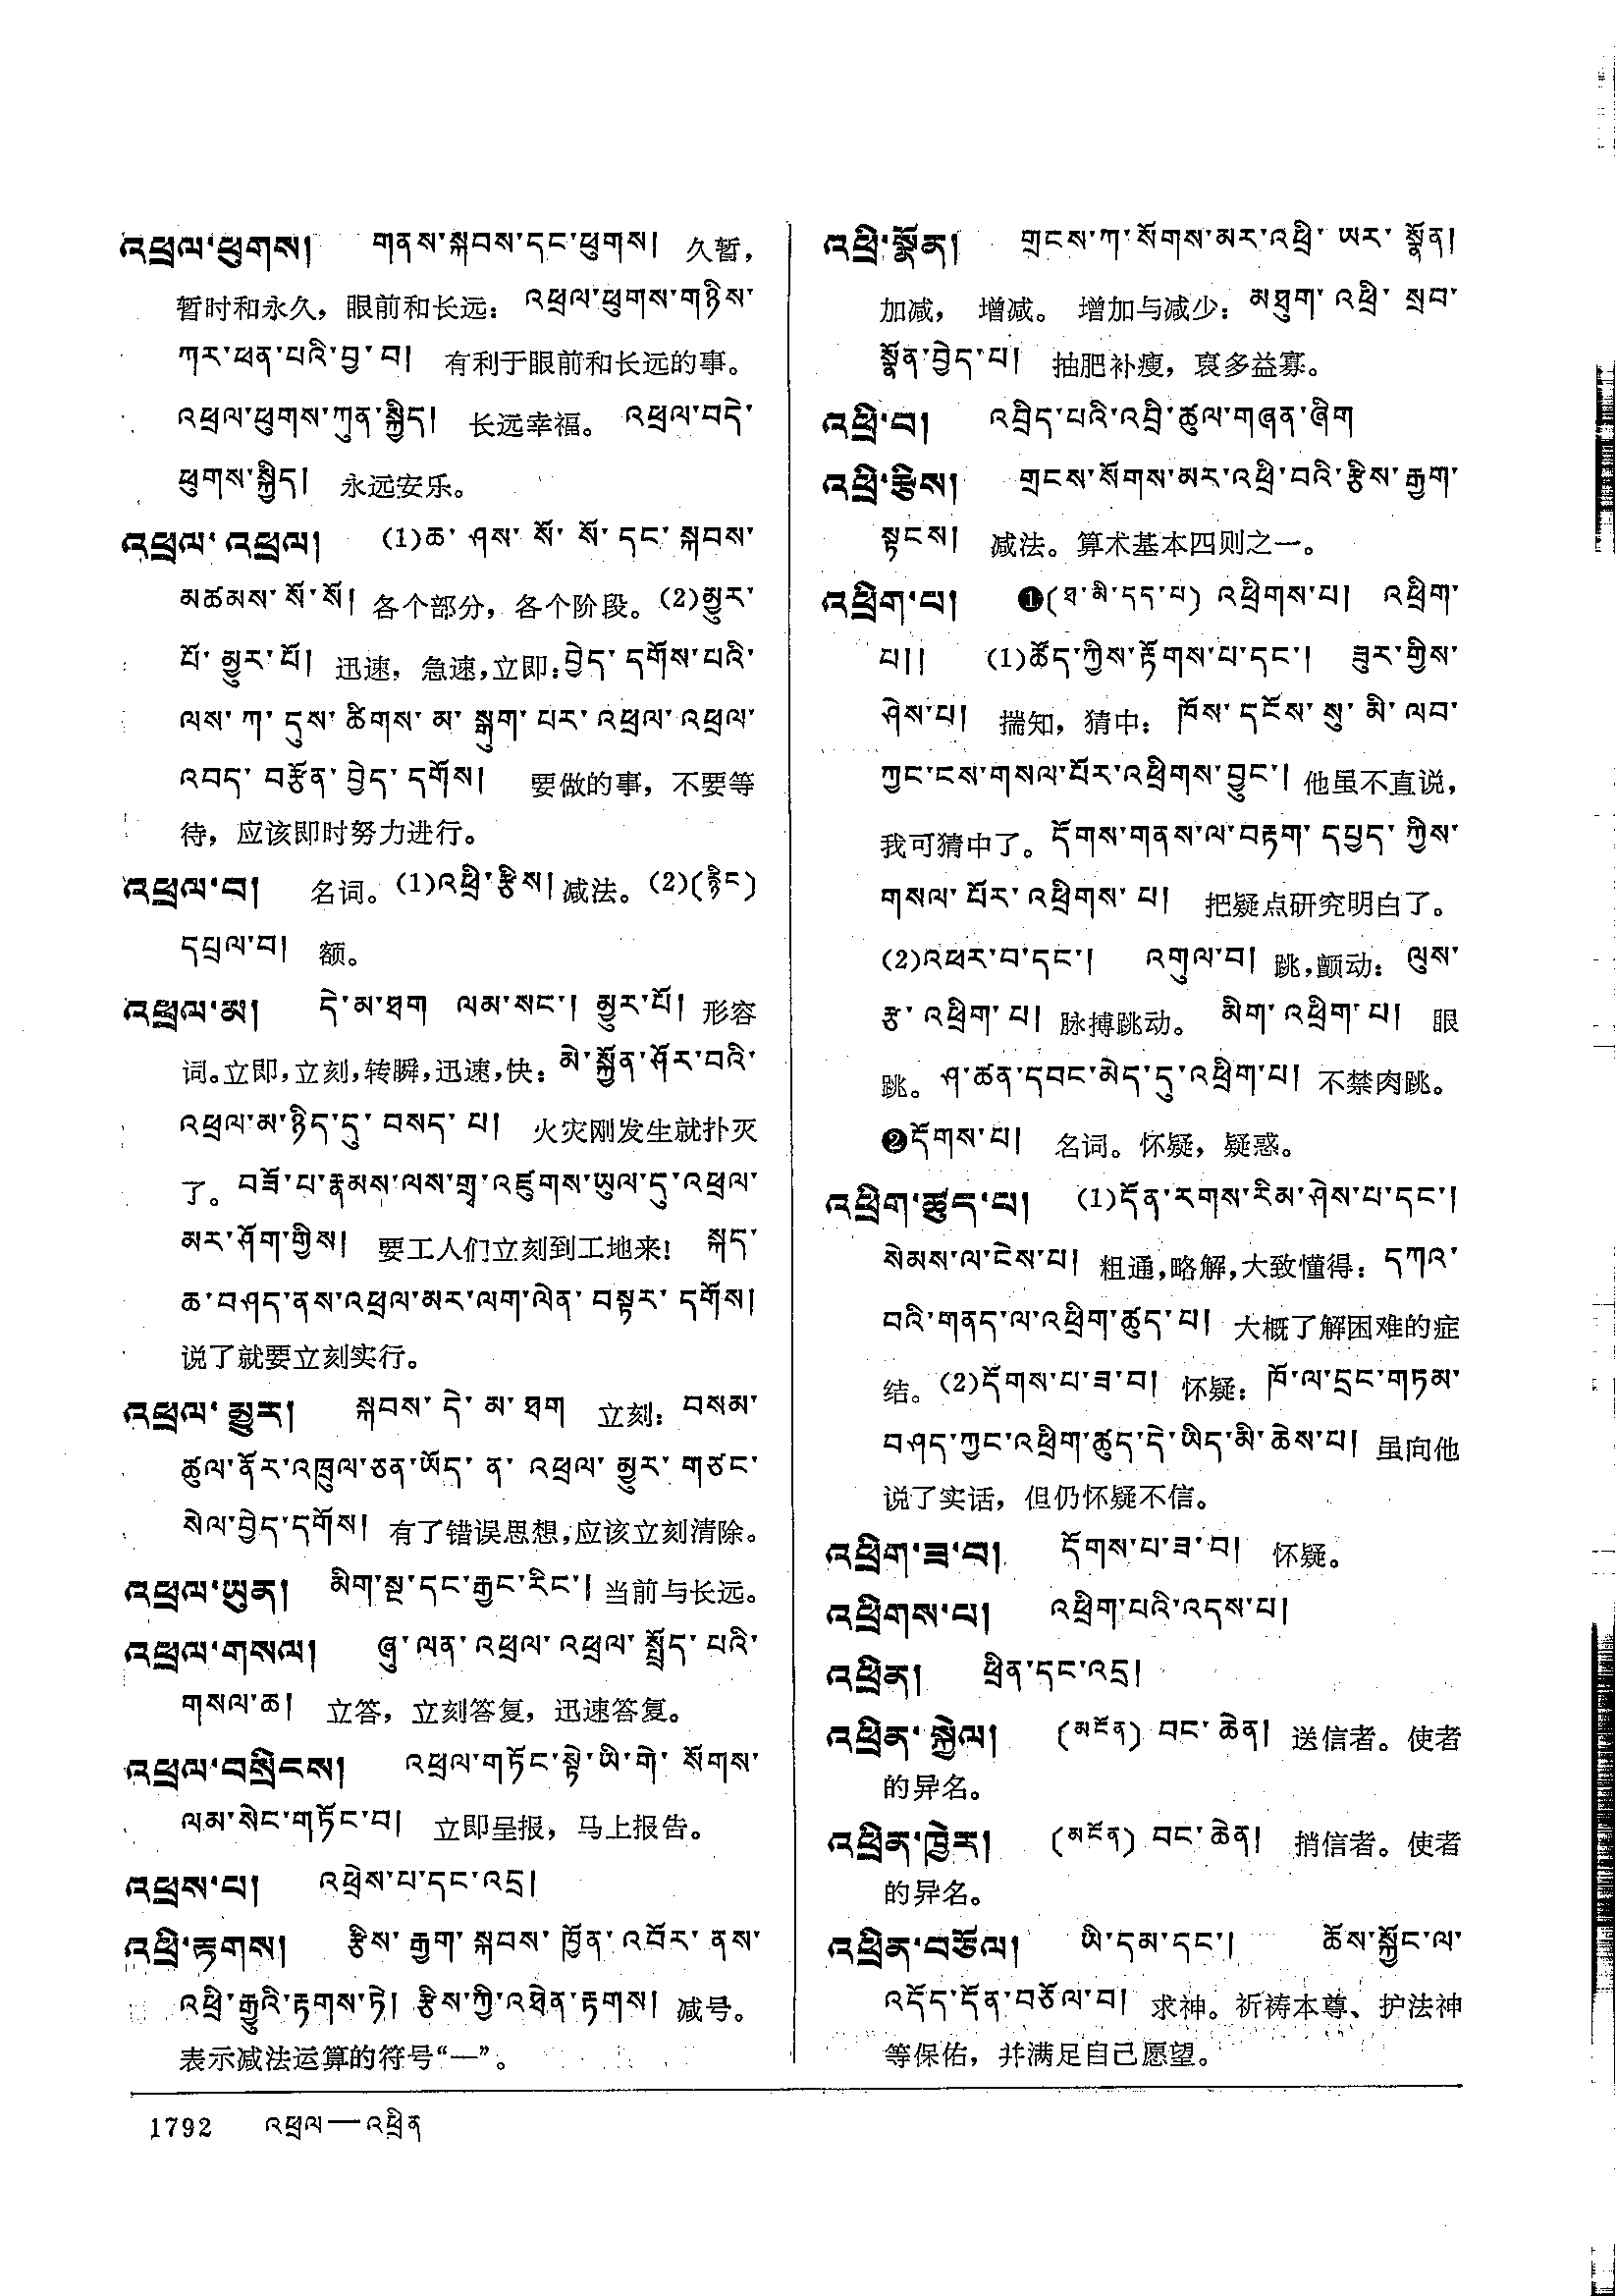 འཕྲལ་ཕུགས། གནས་སྐབས་དང་ཕུགས། 久暂，
暂时和永久，眼前和长远：འཕྲལ་ཕུགས་གཉིས་
ཀར་ཕན་པའི་བྱ་བ། 有利于眼前和长远的事。
འཕྲལ་ཕུགས་ཀུན་སྐྱིད། 长远幸福。འཕྲལ་བདེ་
ཕུགས་སྐྱིད། 永远安乐。
འཕྲལ་འཕྲལ། (1)ཆ་ཤས་སོ་སོ་དང་སྐབས་
མཚམས་སོ་སོ། 各个部分，各个阶段。(2)མྱུར་
པོ་མྱུར་པོ། 迅速，急速，立即：བྱེད་དགོས་པའི་
ལས་ཀ་དུས་ཚིགས་མ་སྒུག་པར་འཕྲལ་འཕྲལ་
འབད་བརྩོན་བྱེད་དགོས། 要做的事，不要等
待，应该即时努力进行。
འཕྲལ་བ། 名词。(1)འཕྲི་རྩིས། 减法。(2)(རྙིང)
དཔྲལ་བ། 额。
འཕྲལ་མ། དེ་མ་ཐག ལམ་སང་། མྱུར་པོ། 形容
词。立即，立刻，转瞬，迅速，快：མེ་སྐྱོན་ཤོར་བའི་
འཕྲལ་མ་ཉིད་དུ་བསད་པ། 火灾刚发生就扑灭
了。བཟོ་པ་རྣམས་ལས་གྲྭ་འཛུགས་ཡུལ་དུ་འཕྲལ་
མར་ཤོག་གྱིས། 要工人们立刻到工地来！སྐད་
ཆ་བཤད་ནས་འཕྲལ་མར་ལག་ལེན་བསྟར་དགོས།
说了就要立刻实行。
འཕྲལ་མྱུར། སྐབས་དེ་མ་ཐག 立刻：བསམ་
ཚུལ་ནོར་འཁྲུལ་ཅན་ཡོད་ན་འཕྲལ་མྱུར་གཙང་
སེལ་བྱེད་དགོས། 有了错误思想，应该立刻清除。
འཕྲལ་ཡུན། མིག་སྔ་དང་རྒྱང་རིང་། 当前与长远。
འཕྲལ་གསལ། ཞུ་ལན་འཕྲལ་འཕྲལ་སྤྲོད་པའི་
གསལ་ཆ། 立答，立刻答复，迅速答复。
འཕྲལ་བསྲིངས། འཕྲལ་གཏོང་སྟེ་ཡི་གེ་སོགས་
ལམ་སེང་གཏོང་བ། 立即呈报，马上报告。
འཕྲས་པ། འཕྲེས་པ་དང་འདྲ།
འཕྲི་རྟགས། རྩིས་རྒྱག་སྐབས་ཁྱོན་འབོར་ནས་
འཕྲི་རྒྱུའི་རྟགས་ཏེ། རྩིས་ཀྱི་འཐེན་རྟགས། 减号。
表示减法运算的符号“—”。
འཕྲི་སྣོན། གྲངས་ཀ་སོགས་མར་འཕྲི་ཡར་སྣོན།
加减，增减。增加与减少：མཐུག་འཕྲི་སྲབ་
སྣོན་བྱེད་པ། 抽肥补瘦，裒多益寡。
འཕྲི་བ། འབྲིད་པའི་འབྲི་ཚུལ་གཞན་ཞིག
འཕྲི་རྩིས། གྲངས་སོགས་མར་འཕྲི་བའི་རྩིས་རྒྱག་
སྟངས། 减法。算术基本四则之一。
འཕྲིག་པ། ❶(ཐ་མི་དད་པ) འཕྲིགས་པ། འཕྲིག་
པ།། (1)ཚོད་ཀྱིས་རྟོགས་པ་དང་། ཟུར་གྱིས་
ཤེས་པ། 揣知，猜中：ཁོས་དངོས་སུ་མི་ལབ་
ཀྱང་ངས་གསལ་པོར་འཕྲིགས་བྱུང་། 他虽不直说，
我可猜中了。དོགས་གནས་ལ་བརྟག་དཔྱད་ཀྱིས་
གསལ་པོར་འཕྲིགས་པ། 把疑点研究明白了。
(2)འཕར་བ་དང་། འགུལ་བ། 跳，颤动：ལུས་
རྩ་འཕྲིག་པ། 脉搏跳动。མིག་འཕྲིག་པ། 眼
跳。ཤ་ཚན་དབང་མེད་དུ་འཕྲིག་པ། 不禁肉跳。
❷དོགས་པ། 名词。怀疑，疑惑。
འཕྲིག་ཚུད་པ། (1)དོན་རགས་རིམ་ཤེས་པ་དང་།
སེམས་ལ་ངེས་པ། 粗通，略解，大致懂得：དཀའ་
བའི་གནད་ལ་འཕྲིག་ཚུད་པ། 大概了解困难的症
结。(2)དོགས་པ་ཟ་བ། 怀疑：ཁོ་ལ་དྲང་གཏམ་
བཤད་ཀྱང་འཕྲིག་ཚུད་དེ་ཡིད་མི་ཆེས་པ། 虽向他
说了实话，但仍怀疑不信。
འཕྲིག་ཟ་བ། དོགས་པ་ཟ་བ། 怀疑。
འཕྲིགས་པ། འཕྲིག་པའི་འདས་པ།
འཕྲིན། ཕྲིན་དང་འདྲ།
འཕྲིན་སྐྱེལ། (མངོན) བང་ཆེན། 送信者。使者
的异名。
འཕྲིན་ཁྱེར། (མངོན) བང་ཆེན། 捎信者。使者
的异名。
འཕྲིན་བཅོལ། ཡི་དམ་དང་། ཆོས་སྐྱོང་ལ་
འདོད་དོན་བཅོལ་བ། 求神。祈祷本尊、护法神
等保佑，并满足自己愿望。
1792 འཕྲལ—འཕྲིན